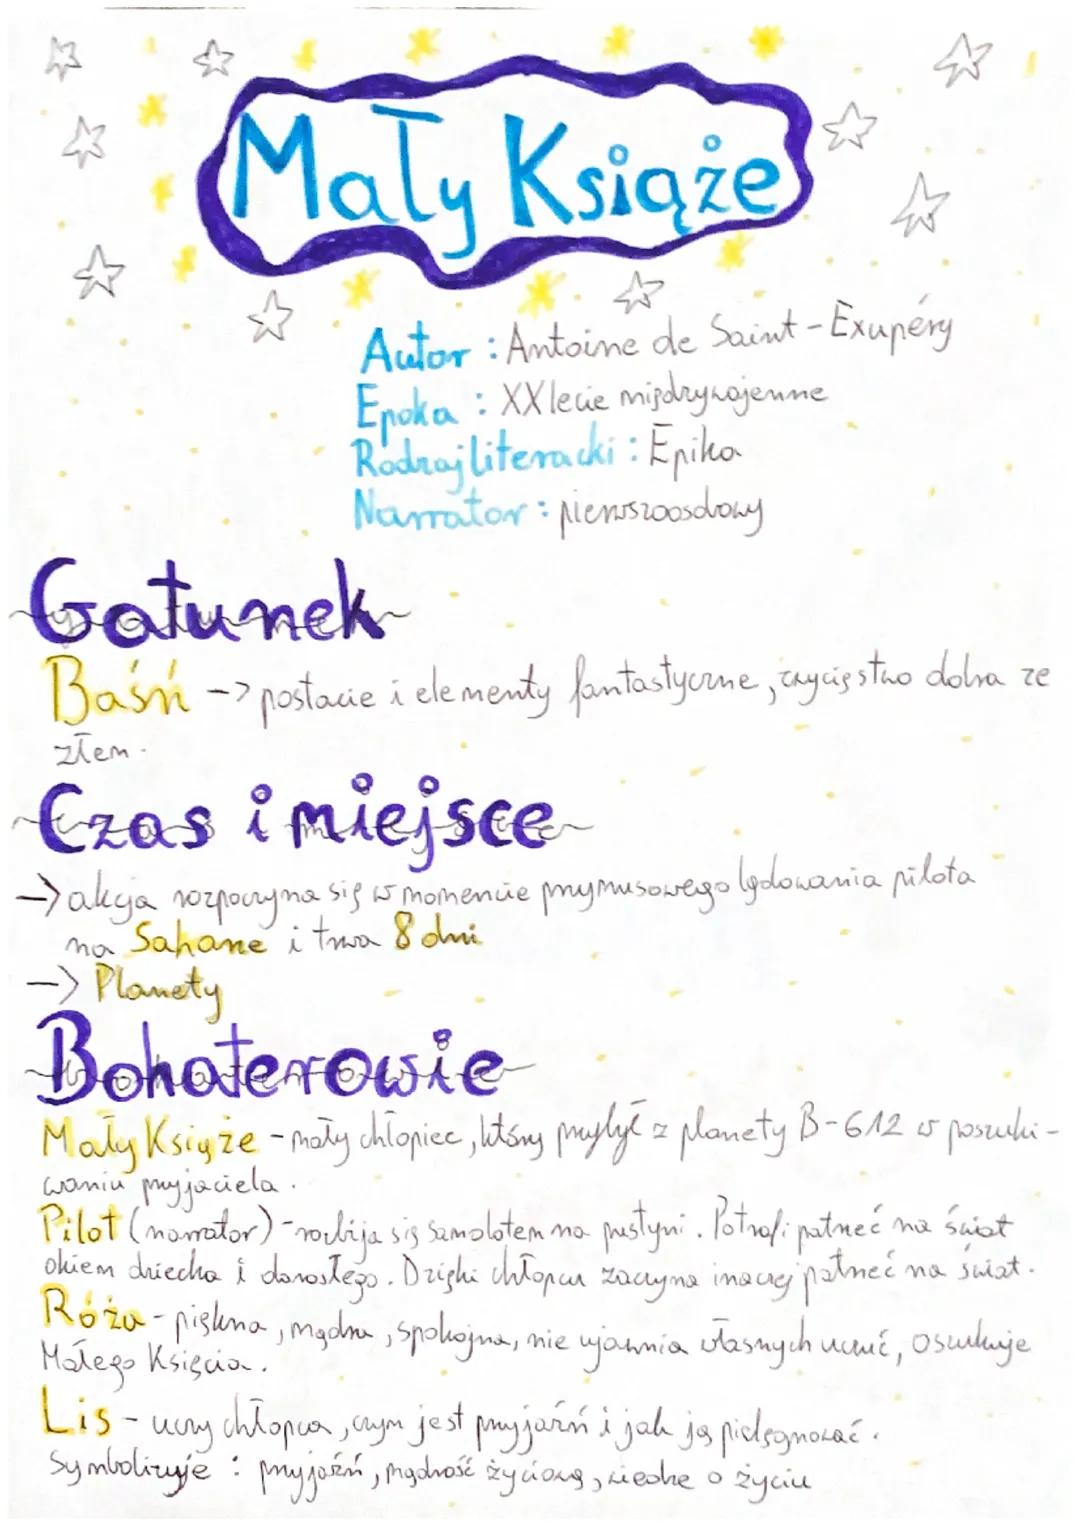 Mały Książe
Autor : Antoine de Saint-Exupéry
Epoka : XXlecie międzywojenne
Rodzaj literacki : Epika
Narrator : pierwszoosobowy
Gatunek
Baśń -> postacie i elementy fantastyczne, zwycięstwo dobra ze
złem.
Czas i miejsce
-> akcja rozpoczyna się w momencie przymusowego lądowania pilota
na Saharze i trwa 8 dni
-> Planety
Bohaterowie
Mały Książe - mały chłopiec, który przybył z planety B-612 w poszuki-
waniu przyjaciela.
Pilot (narrator) - rozbija się samolotem na pustyni. Potrafi patrzeć na świat
okiem dziecka i dorosłego. Dzięki chłopcu zaczyna inaczej patrzeć na świat.
Róża - piękna, mądra, spokojna, nie ujawnia własnych uczuć, oszukuje
Małego Księcia.
Lis - uczy chłopca, czym jest przyjaźń i jak ją pielęgnować.
Symbolizuje : przyjaźń, mądrość życiową, wiedzę o życiu